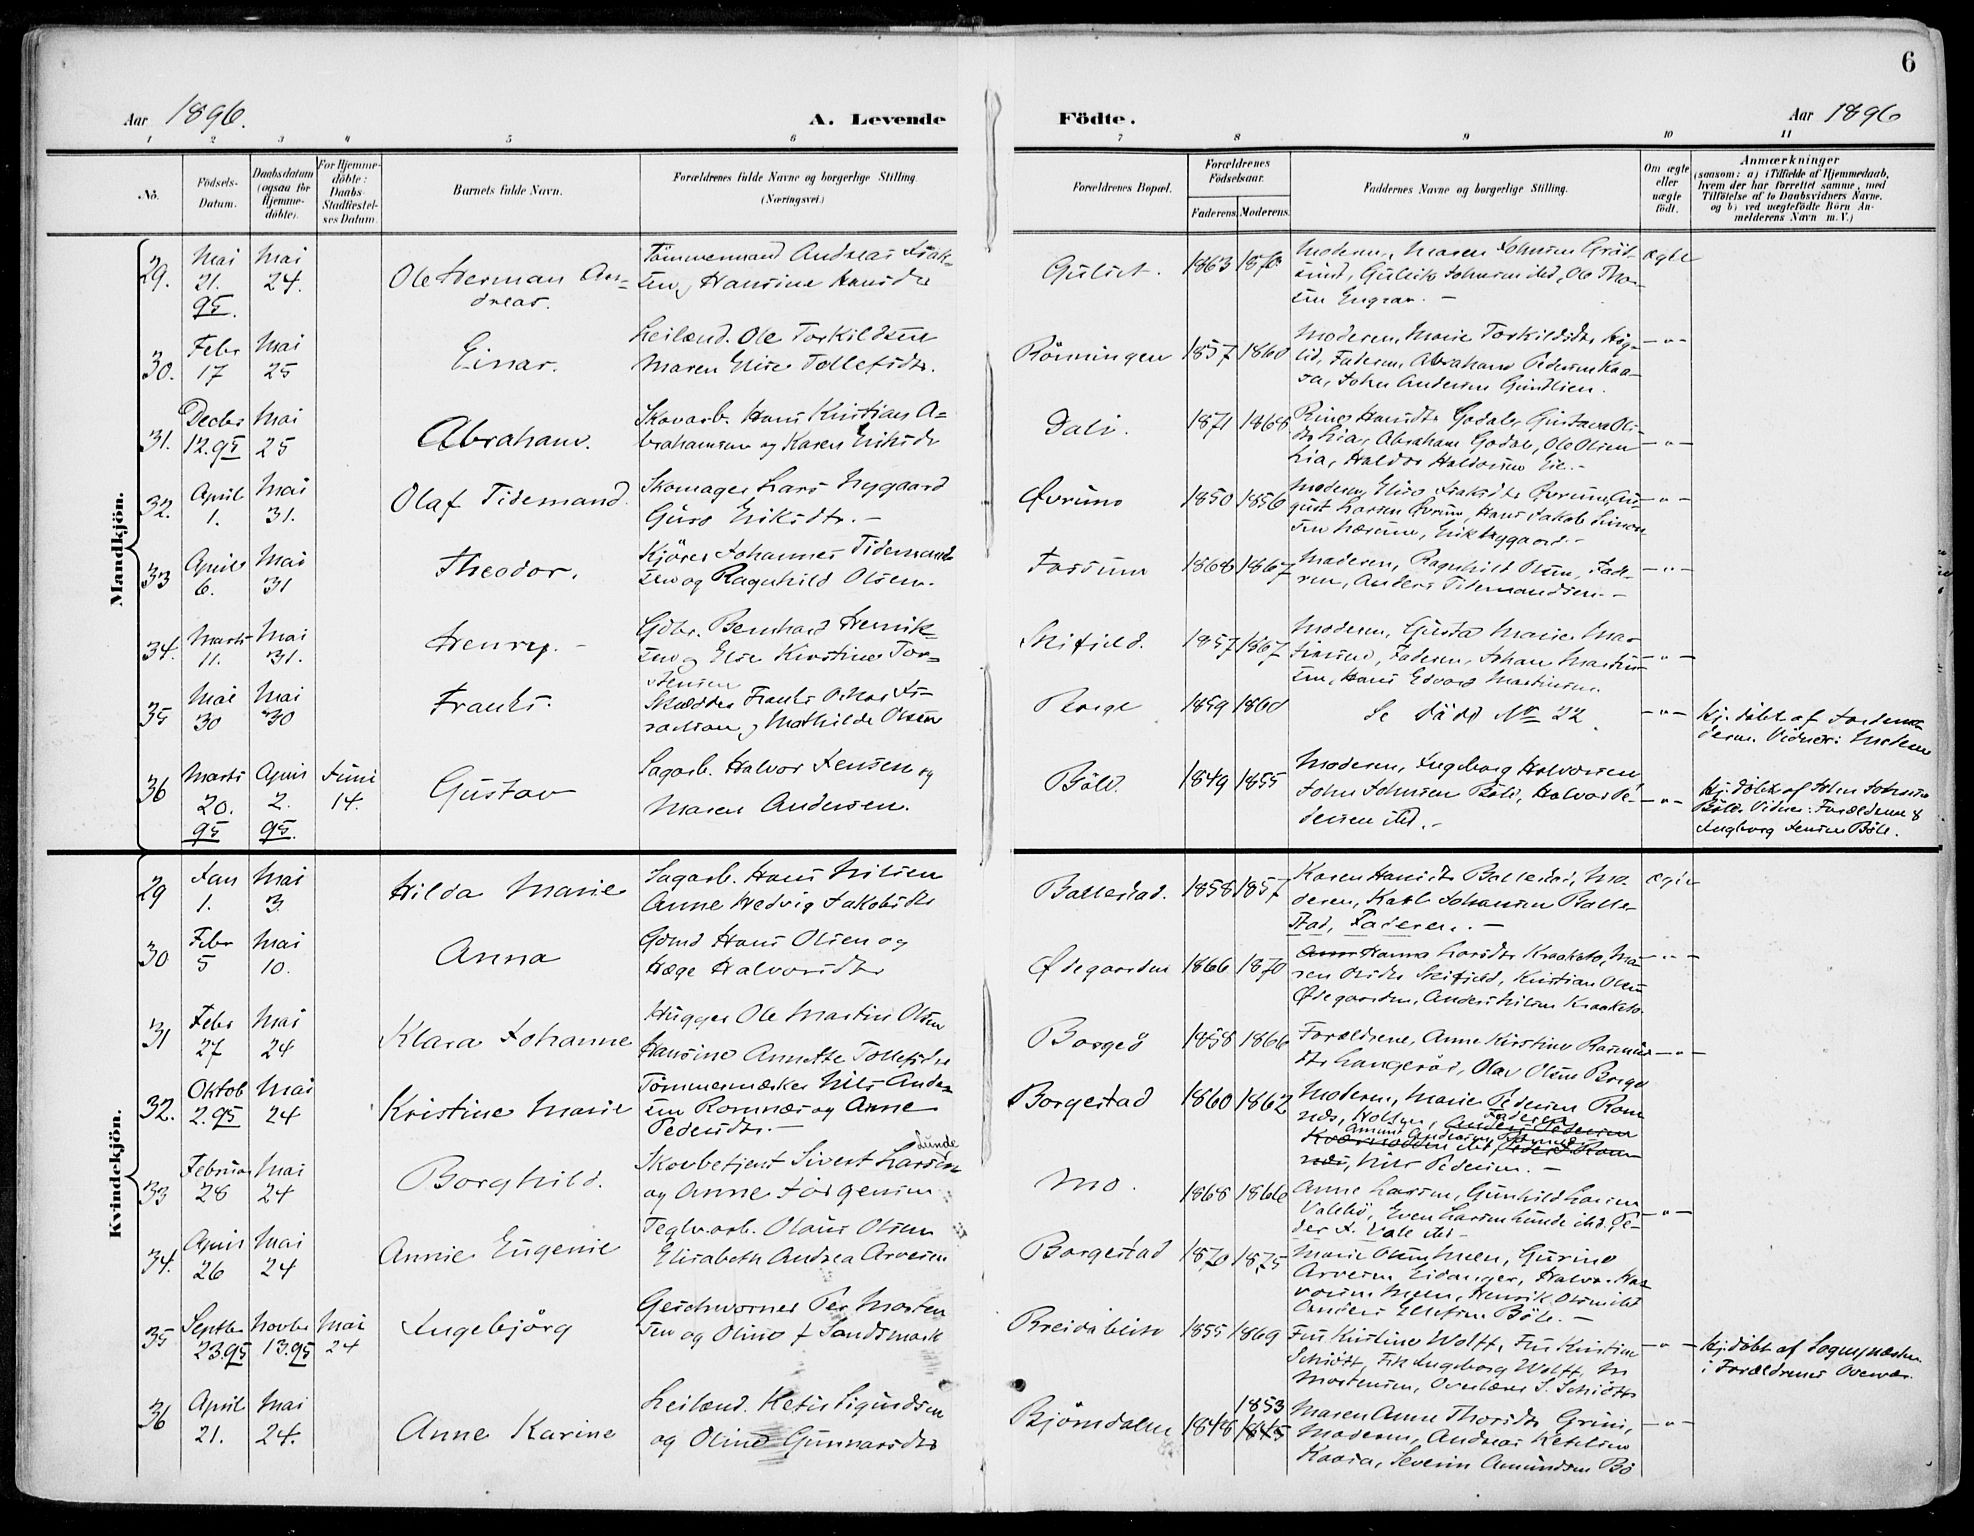 6
Aar 1896.
A. Levende
Födte.
Aar 1896
1 2 3 4 5 6 7 8 9 10 11
No.
Födsels-
Datum.
Daabsdatum
(ogsaa for
Hjemme-
döbte).
For Hjemme-
döbte:
Daabs-
Stadfæstel-
ses Datum.
Barnets fulde Navn.
Forældrenes fulde Navne og borgerlige Stilling.
(Næringsvei.)
Forældrenes Bopæl.
Forældrenes
Födselsaar.
Faderens. Moderens.
Faddernes Navne og borgerlige Stilling.
Om ægte
eller
uægte
födt.
Anmærkninger
(saasom: a) i Tilfælde af Hjemmedaab,
hvem der har forrettet samme, med
Tilföielse af to Daabsvidners Navne,
og b) ved uægtefödte Börn An-
melderens Navn m. V.)
Mandkjön.
29. Mai 21. 95. Mai 24. Ole Herman An-
dreas.
Tömmermand Andreas Isak-
sen og Hansine Hansdr
Gulset. 1863
Moderen, Maren Johnsen Gröt-
sund, Gulik Johnsen ibd, Ole Tho-
sen Engrav. –
ægte
30. Febr 17 Mai 25 Einar.
Leilænd. Ole Torkildsen
Maren Elise Tollefsdr
Rönningen 1857 1860
Moderen, Marie Torkildsdr Hög-
lid, Faderen, Abraham Pedersen Kaa-
sa, John Andersen Gundlien.
– " –
31. Decbr 12.95 Mai 25 Abraham.
Skovarb. Hans Kristian A-
brahamsen og Karen Eriksdr
Dali. 1871 1868
Hansdr Godal, Gustava Ols-
dr Lia, Abraham Godal, Ole Olsen
Lia, Haldor Haldorsen Lie. –
– " –
32. April 1. Mai 31. Olaf Tidemand.
Skomager Lars Nygaard
Guro Eriksdr. –
Övrum 1850 1856
Moderen, Elise Isaksdr Övrum, Au-
gust Larsen Övrum, Hans Jakob Simon-
sen Nærum, Erik Nygaard. –
– " –
33 April 6. Mai 31 Theodor.
Kjörer Johannes Tidemand-
sen og Ragnhild Olsen.
Fossum 1868 1867
Moderen, Ragnhild Olsen, Fade-
ren, Anders Tidemandsen. –
– " –
34. Marts 11. Mai 31. Henry. –
Gdbr. Bernhard Henrik-
sen og Else Kirstine Tor-
stensen
Skifjeld. 1857 1867
Moderen, Gusta Marie Mar-
tinsen, Faderen, Johan Martin-
sen, Hans Edvard Martinsen.
– " –
35 Mai 30 Mai 30 Frants.
Skrædder Frants Oskar Is-
aksen og Mathilde Olsen
Borge 1859 1860
Se Födte No 22
– " –
Hj. döbt af Jordemo-
deren. Vidner: Moderen
36 Marts 20. 95 April 2. 95. Juni 14. Gustav
Sagarb. Halvor Jensen og
Maren Andersen.
Böle 1849 1855
Moderen, Ingeborg Halvorsen,
John Johnsen Böle, Halvor Pe-
dersen ibd. –
– " –
Hj. döbt af John Johnsen
Böle. Vidner: Forældrene &
Ingborg Jensen Böle.
Kvindekjön.
29 Jan 1. Mai 3. Hilda Marie
Sagarb. Hans Nilsen
Anne Hedvig Jakobsdr
Ballestad. 1858 1857
Karen Hansdr Ballestad, Mo-
deren, Karl Johansen Balle-
stad, Faderen. –
ægte
30 Febr 5 Mai 10. Anna
Gdmd Hans Olsen og
Hæge Halvorsdtr
Ödegaarden 1866 1870
Hanna Larsdr Kraaketo, Ma-
ren Olsdr Skifjeld, Kristian Olsen
Ödegaarden, Anders Nilsen Kraaketo.
– " –
31 Febr 27 Mai 24 Klara Johanne
Hugger Ole Martin Olsen
Hansine Annette Tollefsdr
Borgeö 1858 1866
Forældrene, Anne Kirstine Rasmus-
dr Langeröd, Olav Olsen Borge
– " –
32. Oktob 2.95 Mai 24 Kristine Marie
Tömmermærker Nils Ander-
sen Romnæs og Anne
Pedersdtr. –
Borgestad 1860 1862
Moderen, Marie Pedersen Rom-
næs, Holden, Anders Pedersen
Faderen
Nils Pedersen. –
33 Februar 28 Mai 24 Borghild.
Skovbetjent Sivert Larsen
Lunde
og Anne Jörgensen
Mo. 1868 1866
Anne Larsen, Gunhild Larsen
Valebö, Even Larsen Lunde ibd. Pe-
der A. Vale ibd –
– " –
34. April 26 Mai 24 Annie Eugenie
Teglv.arb. Olaus Olsen
Elisabeth Andrea Arvesen
Borgestad 1870 1875
Marie Olsen Meen, Gurine
Arvesen Eidanger, Halvor Hal-
vorsen Meen, Henrik Olsen ibd
Anders Ellefsen Böle. –
35 Septbr 23.95 Novbr 13.95 Mai 24 Ingebjörg
Geschworner Per Morten-
sen og Oline f. Sandsmark
Breidablik 1855 1869
Fru Kristine Wolff, Fru Kirstine
Schiött, Frk Ingeborg Wolff, M
Mortensen, Overlærer S. Schiött
– " –
Hj. döbt af Sognepræsten
i Forældrenes Overvær.
36 April 21. Mai 24. Anne Karine
Leilænd. Ketil Sigurdsen
og Oline Gunnarsdr
Björndalen 1848 1853 1845
Maren Anne Thorsdr Grini,
Moderen, Andreas Ketilsen
Kaasa, Severin Amundsen Bö
– " –